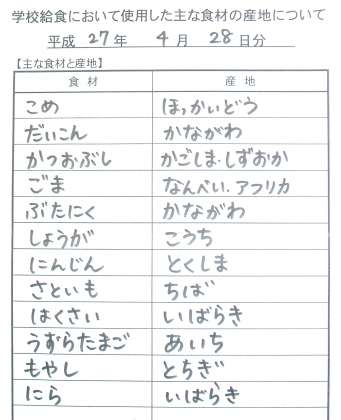 学校給食において使用した主な食材の産地について
平成 27 年 4 月 28 日分
【主な食材と産地】
食材 産地
こめ ほっかいどう
だいこん かながわ
かつおぶし かごしま・しずおか
ごま なんべい.アフリカ
ぶたにく かながわ
しょうが こうち
にんじん とくしま
さといも ちば
はくさい いばらき
うずらたまご あいち
もやし とちぎ
にら いばらき